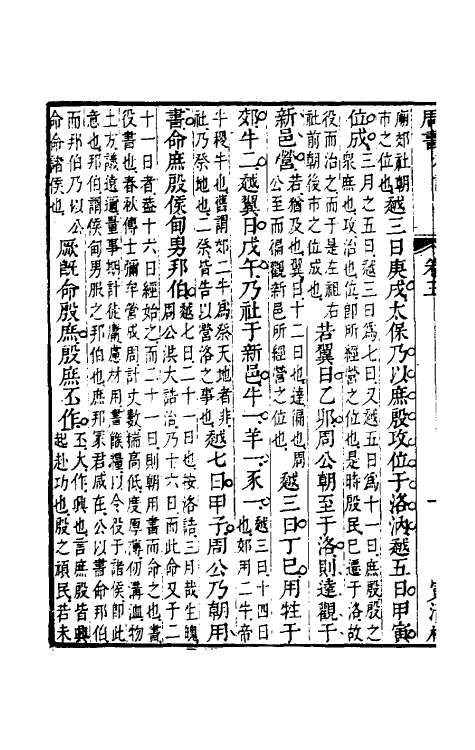 周書 卷五 一
廟郊社朝
市之位也越三日庚戌太保乃以庶殷攻位于洛汭越五日甲寅
位成三月之五日越三日爲七日又越五日爲十一日庶殷殷之
眾庶也攻治也位卽所經營之位也是時殷民已遷于洛故
役而治之而于是左祖右
社前朝後市之位成也若翼日乙卯周公朝至于洛則達觀于
新邑營若猶及也翼日十二日也達徧也周
公至而徧觀新邑所經營之位也越三日丁巳用牲于
郊牛二越翼日戊午乃社于新邑牛一羊一豕一越三日十四日
也郊用二牛帝
牛稷牛也舊謂郊二牛爲祭天地者非
社乃祭地也二祭皆告以營洛之事也越七日甲子周公乃朝用
書命庶殷侯甸男邦伯越七日二十一日也按洛誥三月哉生魄
周公洪大誥治乃十六日而此命又于二
十一日者葢十六日經始之而二十一日則朝用書而命之也書
役書也春秋傳士彌牟營成周計丈數揣高低度厚薄仞溝洫物
土方議遠邇量事期計徒庸慮材用書餱糧以令役于諸侯卽此
意也邦伯謂侯甸男服之邦伯也庶邦冢君咸在公以書命邦伯
而邦伯乃以公
命命諸侯也厥旣命殷庶殷庶丕作丕大作興也言庶殷皆興
起赴功也殷之頑民若未